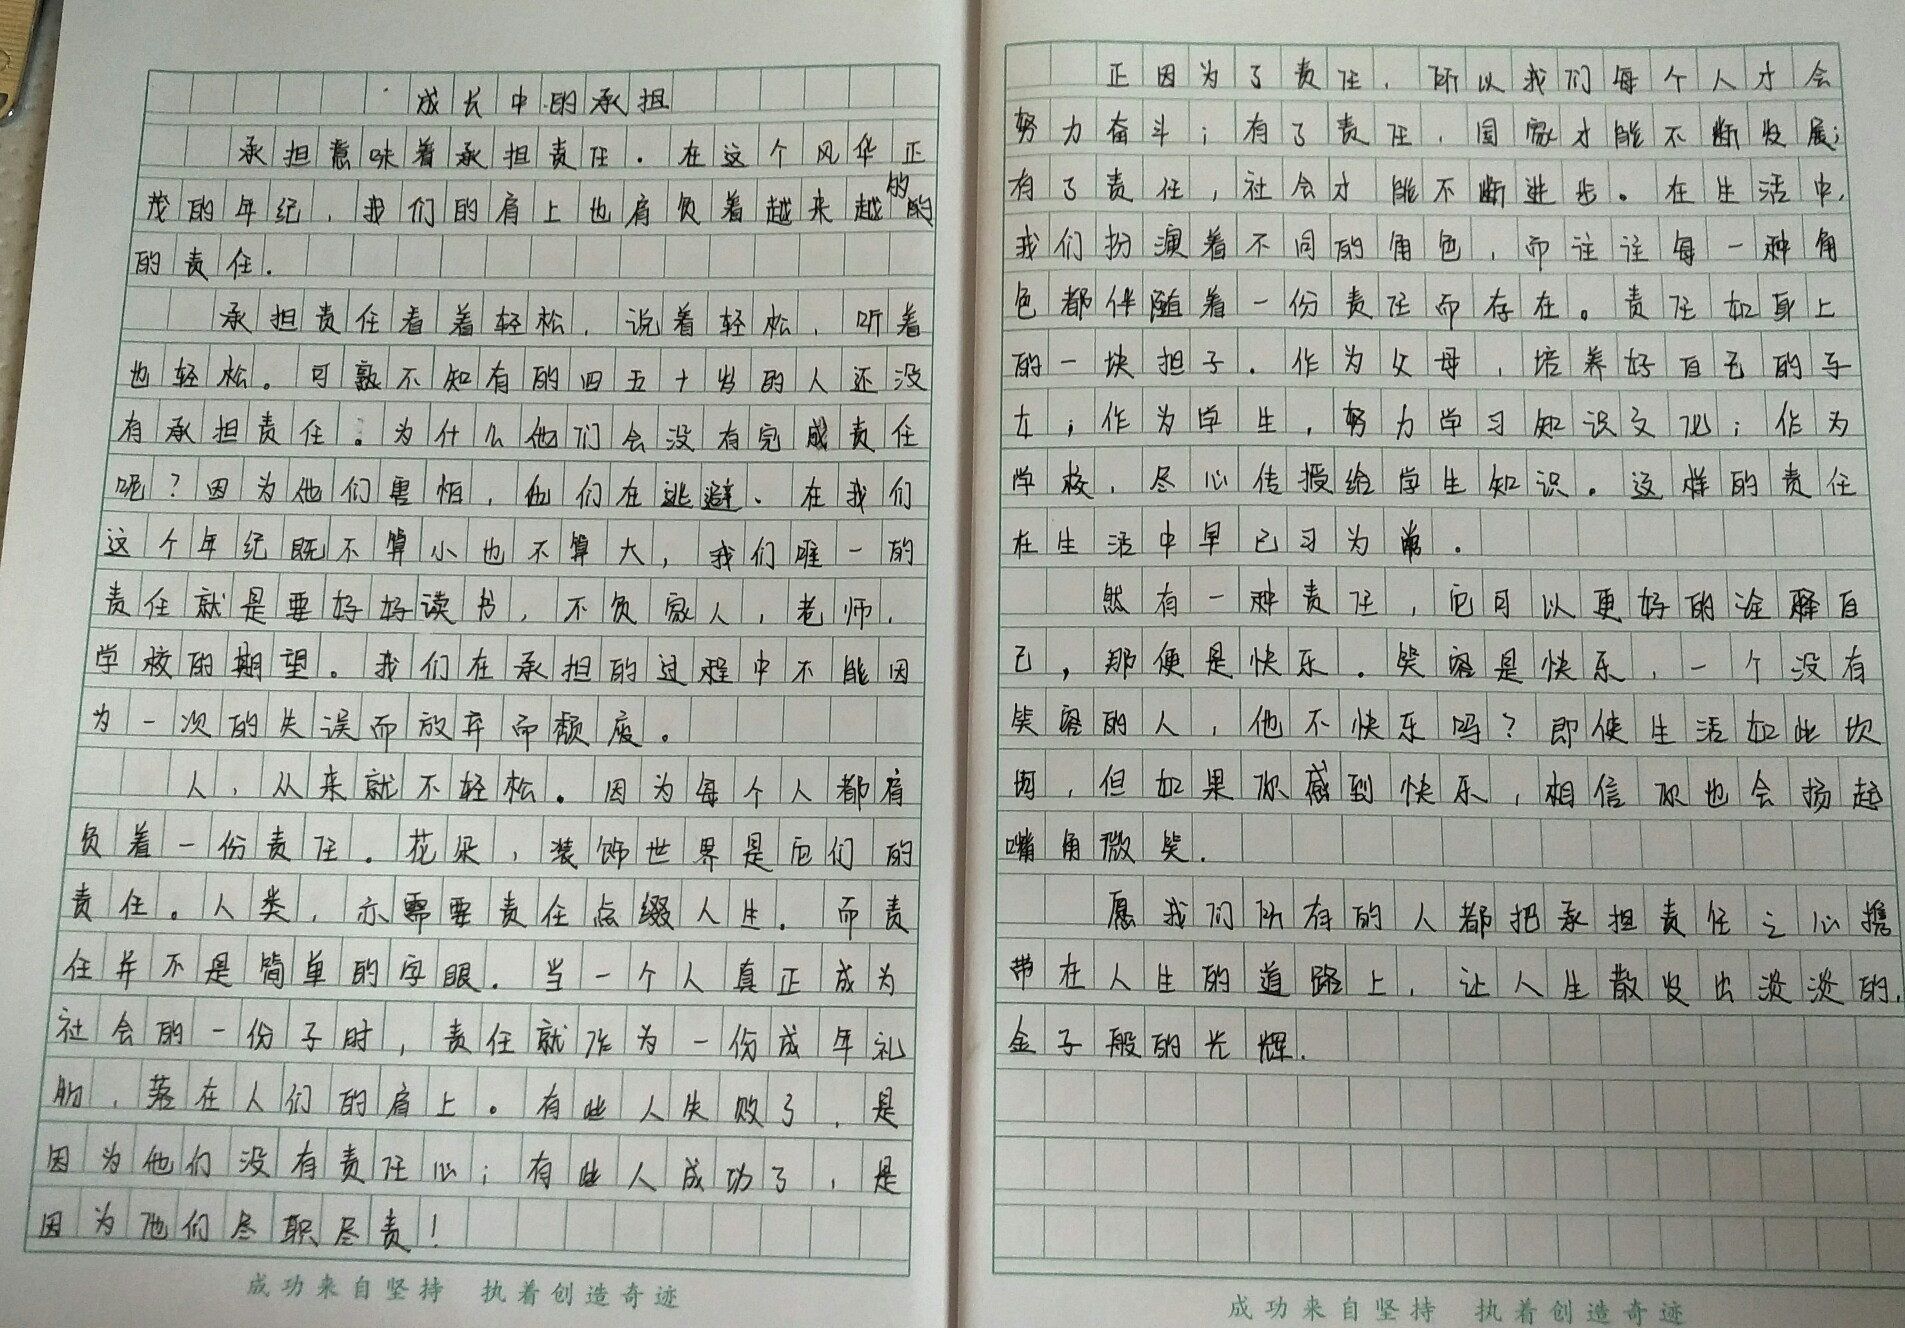 成长中的承担
承担意味着承担责任.在这个风华正
茂的年纪,我们的肩上也肩负着越来越的
的责任.
承担责任看着轻松,说着轻松,听着
也轻松。可孰不知有的四五十岁的人还没
有承担责任。为什么他们会没有完成责任
呢?因为他们害怕,他们在逃避.在我们
这个年纪既不算小也不算大,我们唯一的
责任就是要好好读书,不负家人,老师,
学校的期望。我们在承担的过程中不能因
为一次的失误而放弃而颓废。
人,从来就不轻松。因为每个人都肩
负着一份责任。花朵,装饰世界是它们的
责任。人类,亦需要责任点缀人生.而责
任并不是简单的字眼.当一个人真正成为
社会的一份子时,责任就作为一份成年礼
物,落在人们的肩上。有些人失败了,是
因为他们没有责任心;有些人成功了,是
因为他们尽职尽责!
成功来自坚持 执着创造奇迹
正因为了责任,所以我们每个人才会
努力奋斗;有了责任,国家才能不断发展;
有了责任,社会才能不断进步。在生活中,
我们扮演着不同的角色,而往往每一种角
色都伴随着一份责任而存在。责任如身上
的一块担子.作为父母,培养好自己的子
女;作为学生,努力学习知识文化;作为
学校,尽心传授给学生知识。这样的责任
在生活中早已习为常.
然有一种责任,它可以更好的诠释自
己,那便是快乐.笑容是快乐,一个没有
笑容的人,他不快乐吗?即使生活如此坎
坷,但如果你感到快乐,相信你也会扬起
嘴角微笑.
愿我们所有的人都把承担责任之心携
带在人生的道路上,让人生散发出淡淡的,
金子般的光辉.
成功来自坚持 执着创造奇迹